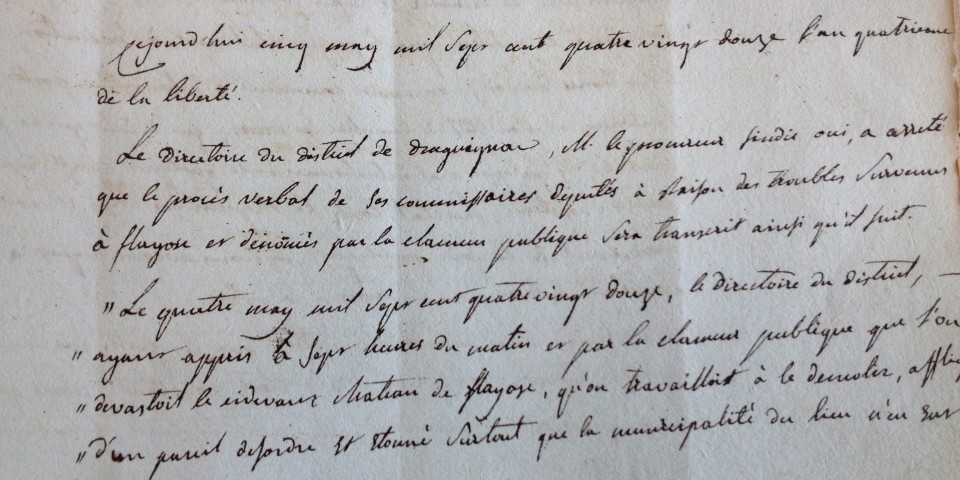 Cejourd'hui cinq may mil sept cent quatre vingt douze l'an quatrieme
de la liberté.
Le directoire du district de draguignan, M. le procureur sindic oui, a arreté
que le procès verbal de ses commissaires deputés à raison des troubles survenus
à flayosc et dénoncés par la clameur publique sera transcrit ainsi qu'il suit.
" Le quatre may mil sept cent quatre vingt douze, le directoire du district, —
" ayant appris à sept heures du matin et par la clameur publique que l'on
" devastoit le cidevant chateau de flayosc, qu'on travailloit à le demolir,
" d'un pareil desordre et etonné surtout que la municipalité du lieu n'en eut